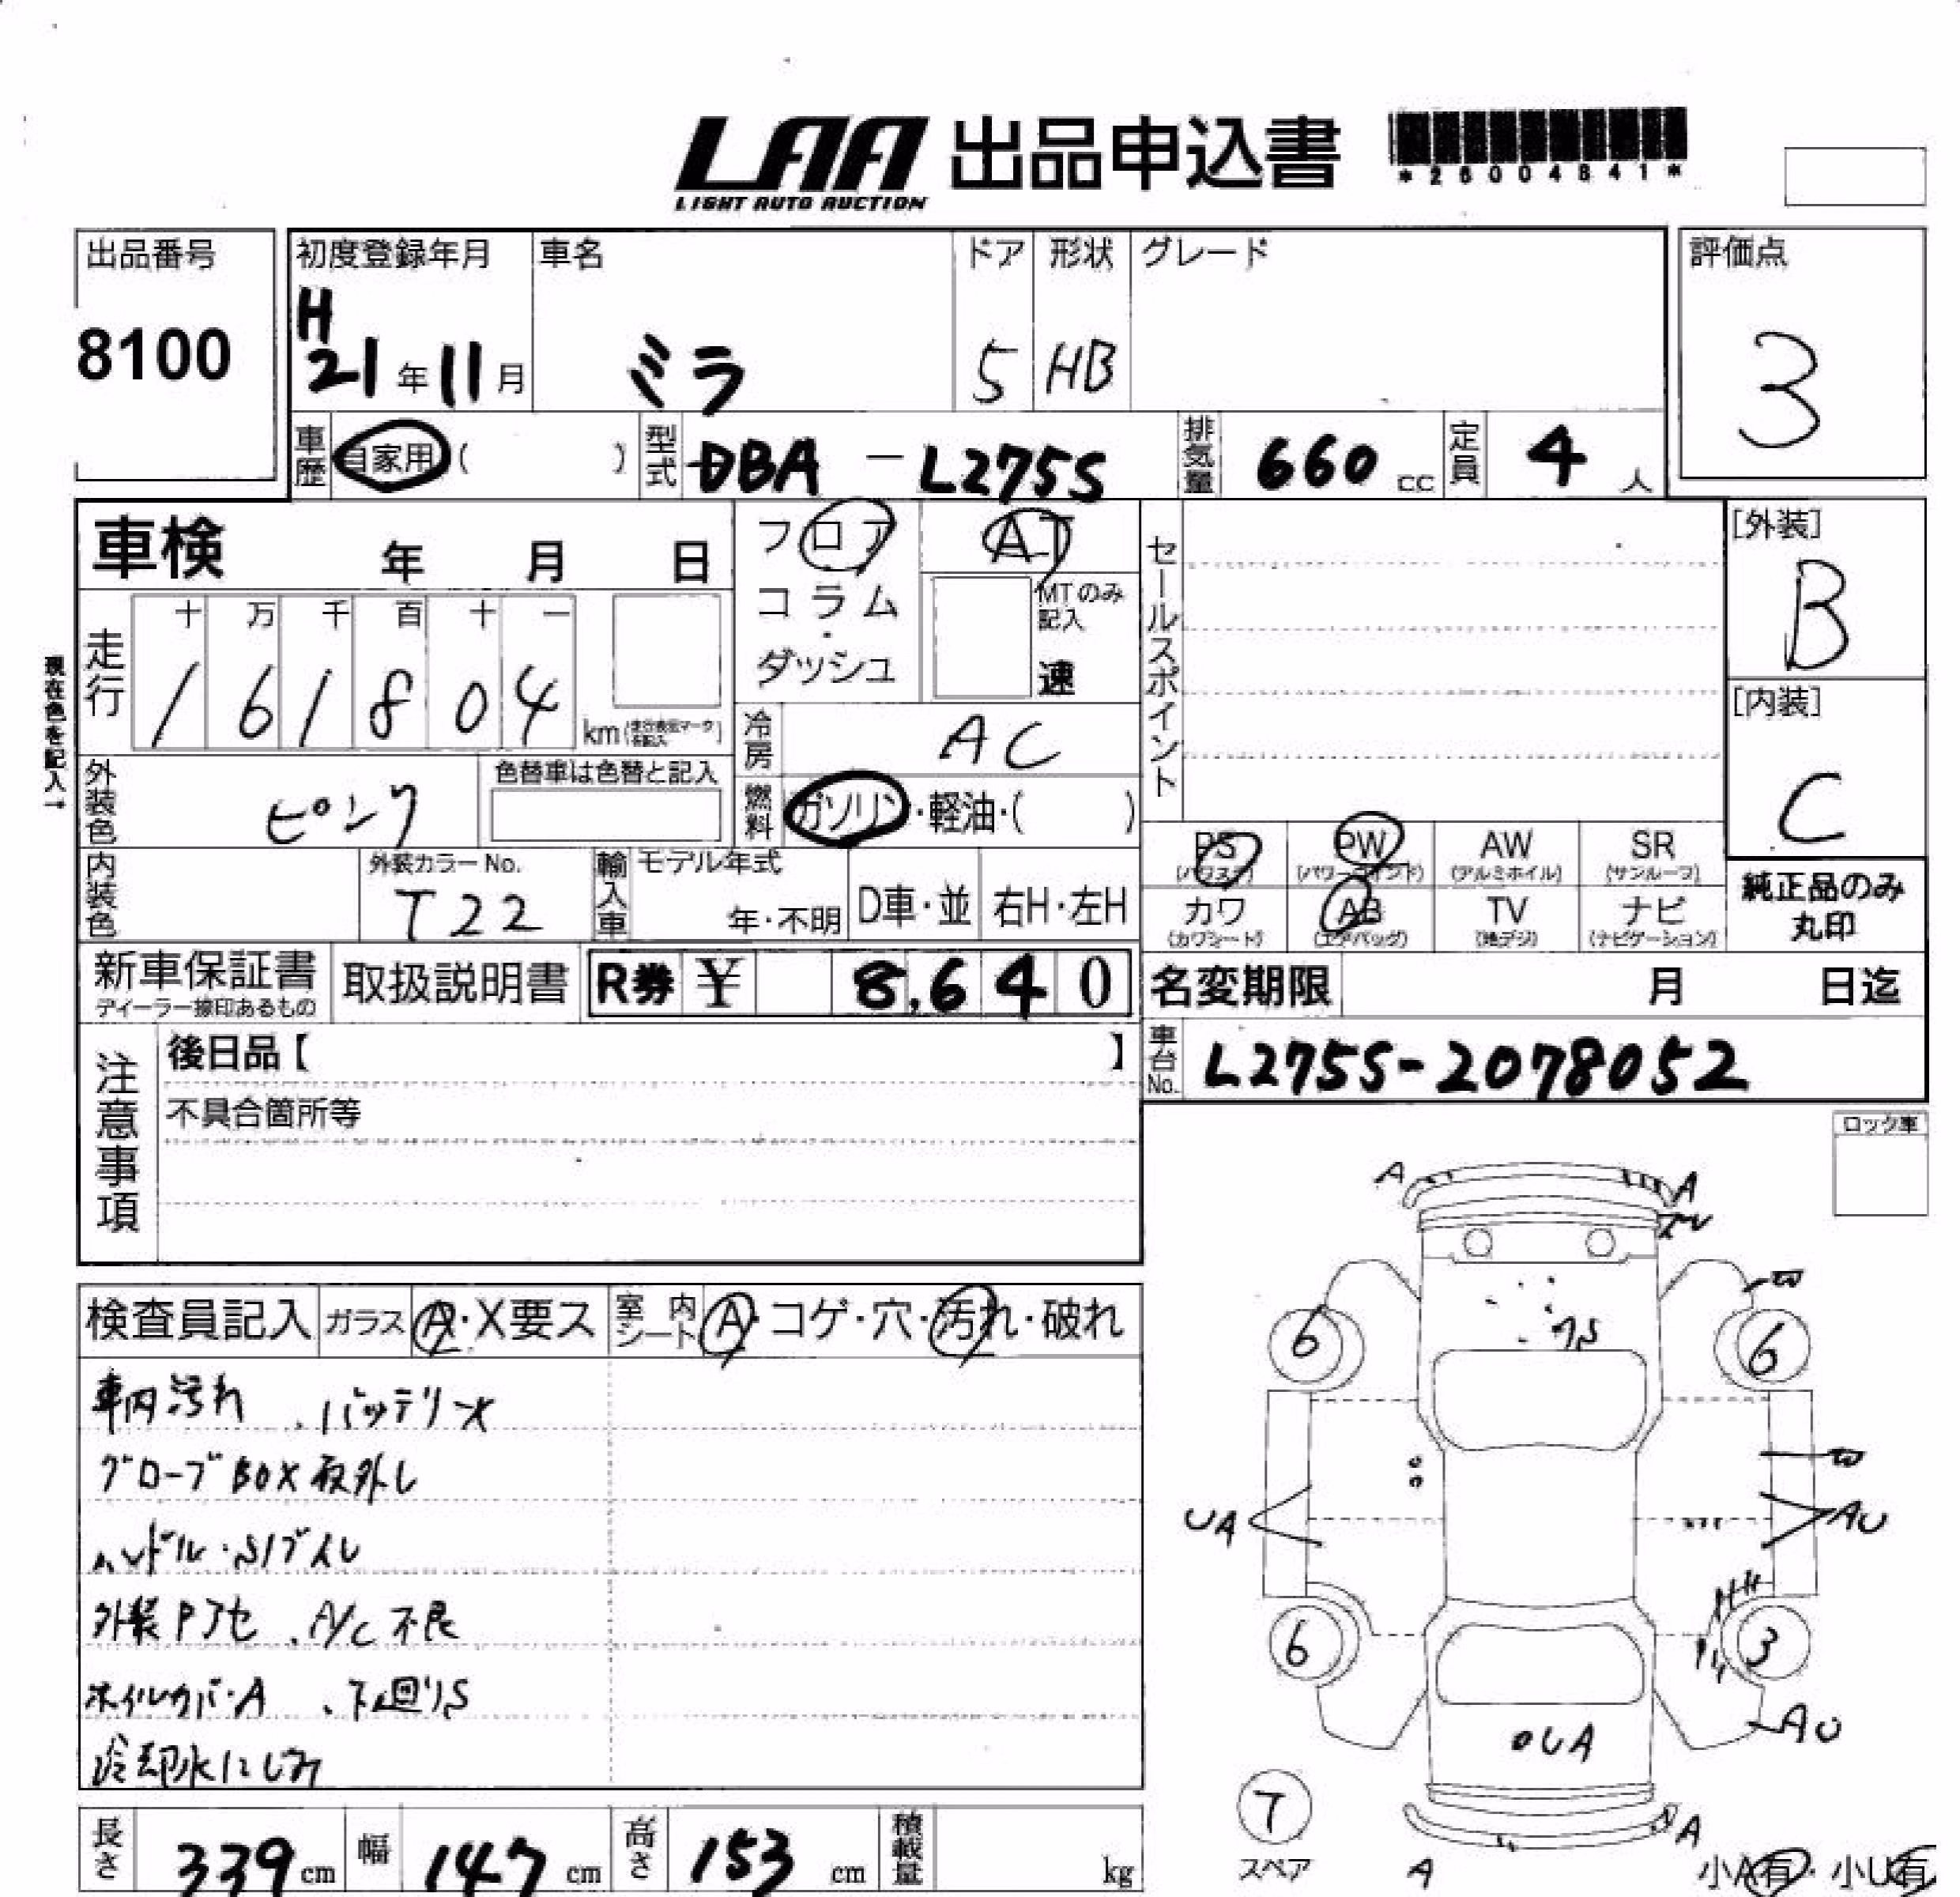 LAA 出品申込書
LIGHT AUTO AUCTION
*26004841*
出品番号 初度登録年月 車名 ドア 形状 グレード 評価点
8100 H21年11月 ミラ 5 HB 3
車歴 自家用( ) 型式 DBA-L275S 排気量 660cc 定員 4人
車検 年 月 日 フロア AT セールスポイント [外装]
コラム・ダッシュ MTのみ記入 速 B
現在色を記入→
走行 十 万 千 百 十 一
1 6 1 8 0 4 km
冷房 AC [内装]
C
外装色 ピンク 色替車は色替と記入 燃料 ガソリン・軽油・( )
内装色 外装カラーNo. T22 輸入車 モデル年式 年・不明 D車・並 右H・左H
PS(パワステ) PW(パワーウインド) AW(アルミホイル) SR(サンルーフ)
カワ(カワシート) AB(エアバッグ) TV(地デジ) ナビ(ナビゲーション)
純正品のみ丸印
新車保証書 ディーラー捺印あるもの 取扱説明書 R券 ¥ 8,640 名変期限 月 日迄
車台No. L275S-2078052
注意事項 後日品【 】
不具合箇所等
ロック車
検査員記入 ガラス A・X要ス 室内シート A・コゲ・穴・汚れ・破れ
車内汚れ . バッテリー
グローブBOX取外し
ハンドル・
外装 . A/C不良
ホイルカバーA . 下廻りS
冷却水にじみ
A A
6 6
UA AU
6 3
UA AU
7
スペア
A A
小A有・小U有
長さ 339cm 幅 147cm 高さ 153cm 積載量 kg